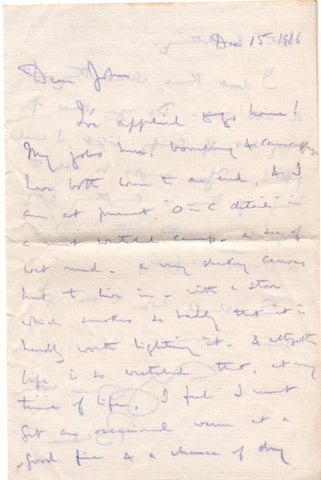 Dec 15 1916
Dear John
I've applied to go home!
My jobs here, bombing & camouflage
have both come to an end, & I
am at present "O-C details" in
a most wretched camp - a sea of
wet mud - a very draughty canvas
hut to live in - with a stove
which smokes so badly that it is
hardly worth lighting it - & altogether
life is so wretched that, at my
time of life, I feel I must
get an occasional warm at a
good fire & a chance of dry